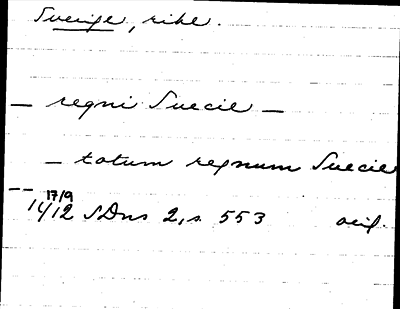 Sverige, rike.
— regni Suecie —
— totum regnum Suecie
-- 17/9
1412 SDns 2, s. 553 orig.